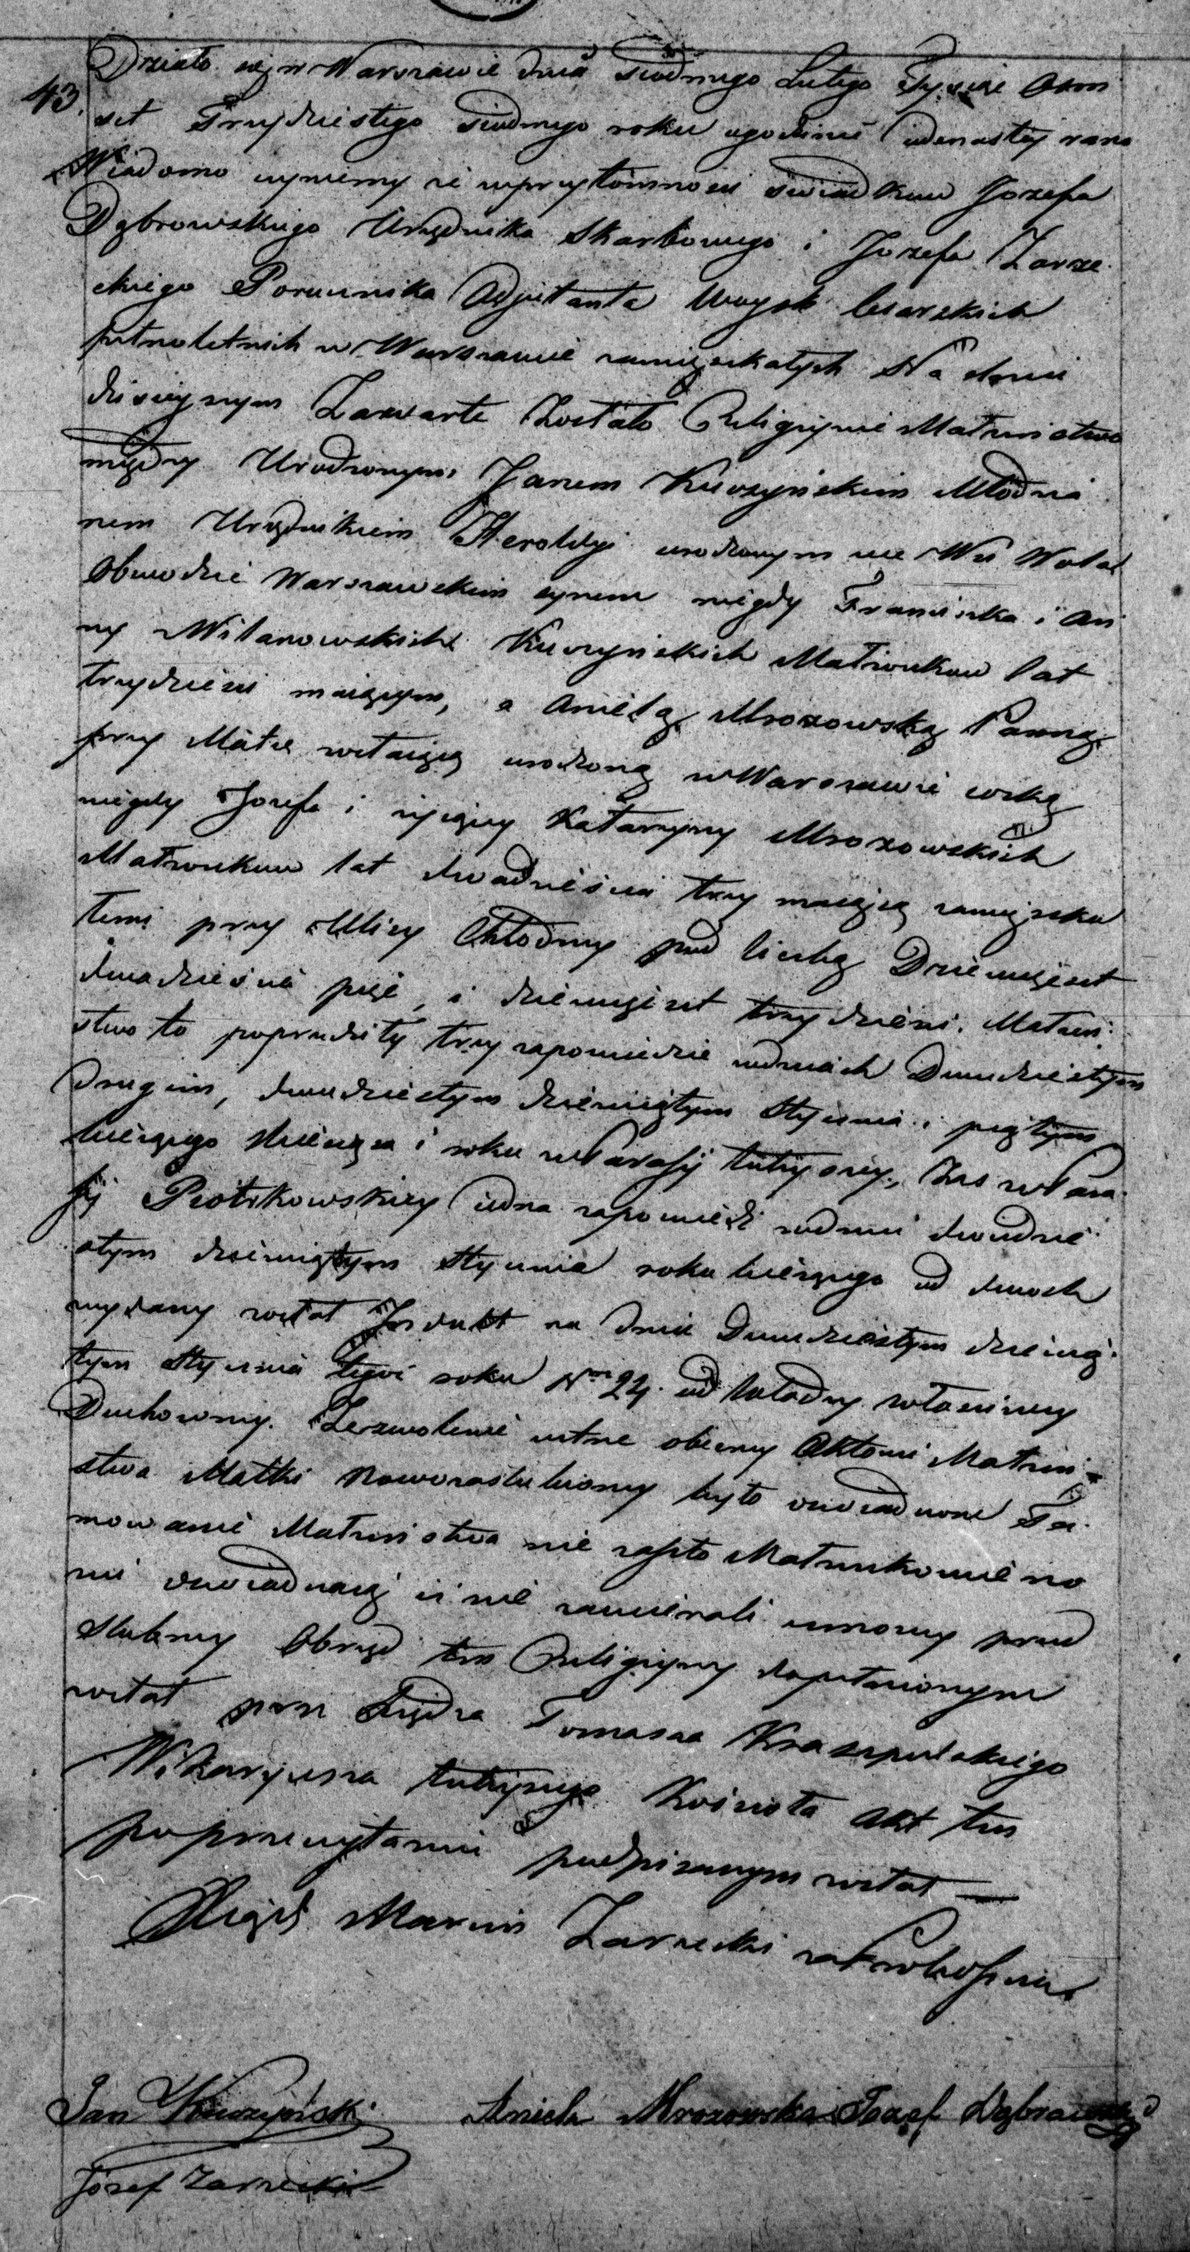 43.
Działo się w Warszawie dnia siódmego Lutego Tysiąc Ośm
set Trzydziestego siódmego roku o godzinie iedenastey rano
Wiadomo czyniemy że w przytomności świadków Jozefa
Dąbrowskiego Urzędnika Skarbowego i Jozefa Zarze
ckiego Porucznika Adjutanta Woysk Cesarskich
pełnoletnich w Warszawie zamięszkałych Na dniu
dzisieyszym Zawarte Zostało Religiyne Małżeństwo
między Urodzonym Janem Kuczyńskim Młodzia
nem Urzędnikiem Heroldyi urodzonym we Wsi Wola
Obwodzie Warszawskim synem niegdy Franciszka i An
ny Milanowskich Kuczyńskich Małżonków lat
trzydzieści maiącym, a Anielą Mrozowską Panną
przy Matce zostaiącą urodzoną w Warszawie córką
niegdy Jozefa i żyiącey Katarzyny Mrozowskich
Małżonków lat dwadzieścia trzy maiącą zamięszka
łemi przy Ulicy Chłodney pod liczbą Dziewięćset
dwadzieścia pięć, i dziewięćset trzydzieści. Małżeń
stwo to poprzedziły trzy zapowiedzie w dniach Dwudziestym
Drugim, dwudziestym dziewiątym Stycznia i piątym
bieżącego Miesiąca i roku w Parafij tuteyszey, Zaś w Para
fij Piotrkowskiey iedna zapowiedź w dniu dwudzie
stym dziewiątym Stycznia roku bieżącego od dwóch
wydany został Indult na dniu Dwudziestym dziewią
tym Stycznia tegoż roku Nro 24 od Władzy właściwey
Duchowney. Zezwolenie ustne obecney Aktowi Małżeń
stwa Matki Nowozaślubioney było oświadczone Ta
mowanie Małżeństwa nie zaszło Małżonkowie no
wi oświadczaią iż nie zawierali umowy przed
ślubney Obrzęd ten Religiyny dopełnionym
został przez Xiędza Tomasza
Wikaryusza tuteyszego Kościoła Akt ten
po przeczytaniu podpisanym został —
Xiądz Marcin Zarzecki za Proboszcza
Jan Kuczyński Aniela Mrozowska Jozef Dąbrowski
Józef Zarzecki